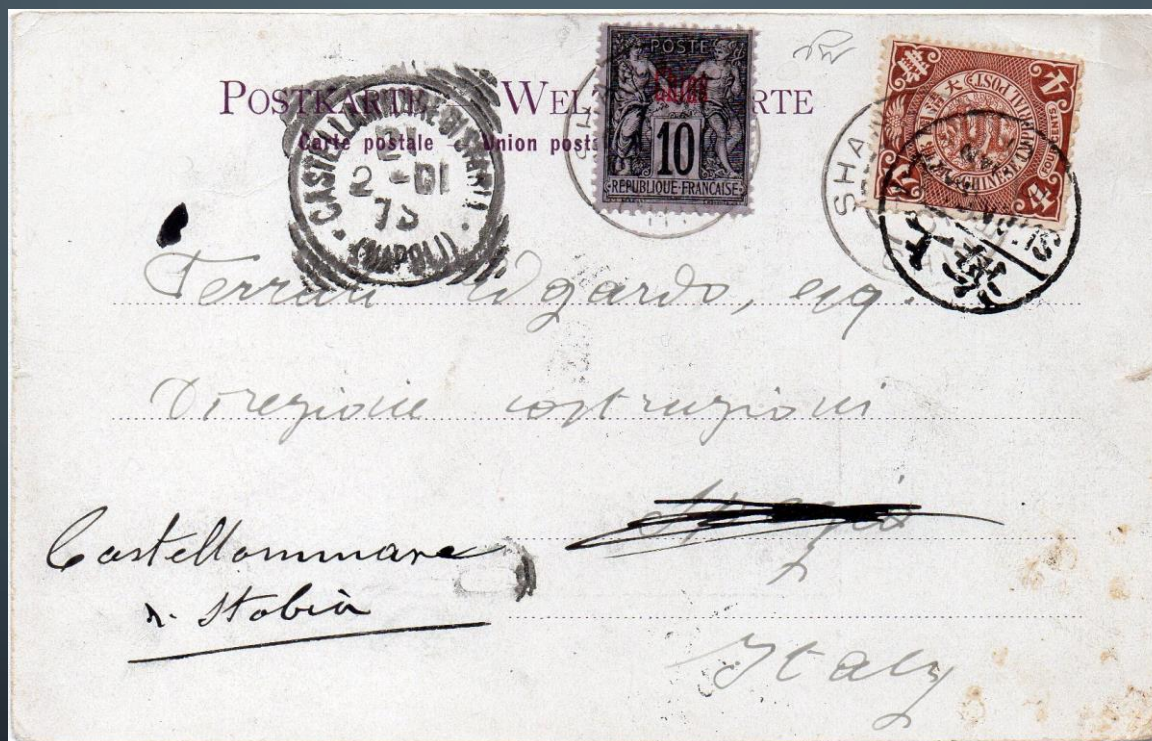 POSTKARTE WELT RTE
Carte postale Union posta
CASTELLAMMARE DI STABIA
21
2-01
7S
(NAPOLI)
POSTE
Chine
10
REPUBLIQUE FRANCAISE
CHINESE IMPERIAL POST
4 CENTS
4
SHA
Edgardo, esq.
Direzione costruzioni
Castellammare
di Stabia
Italy